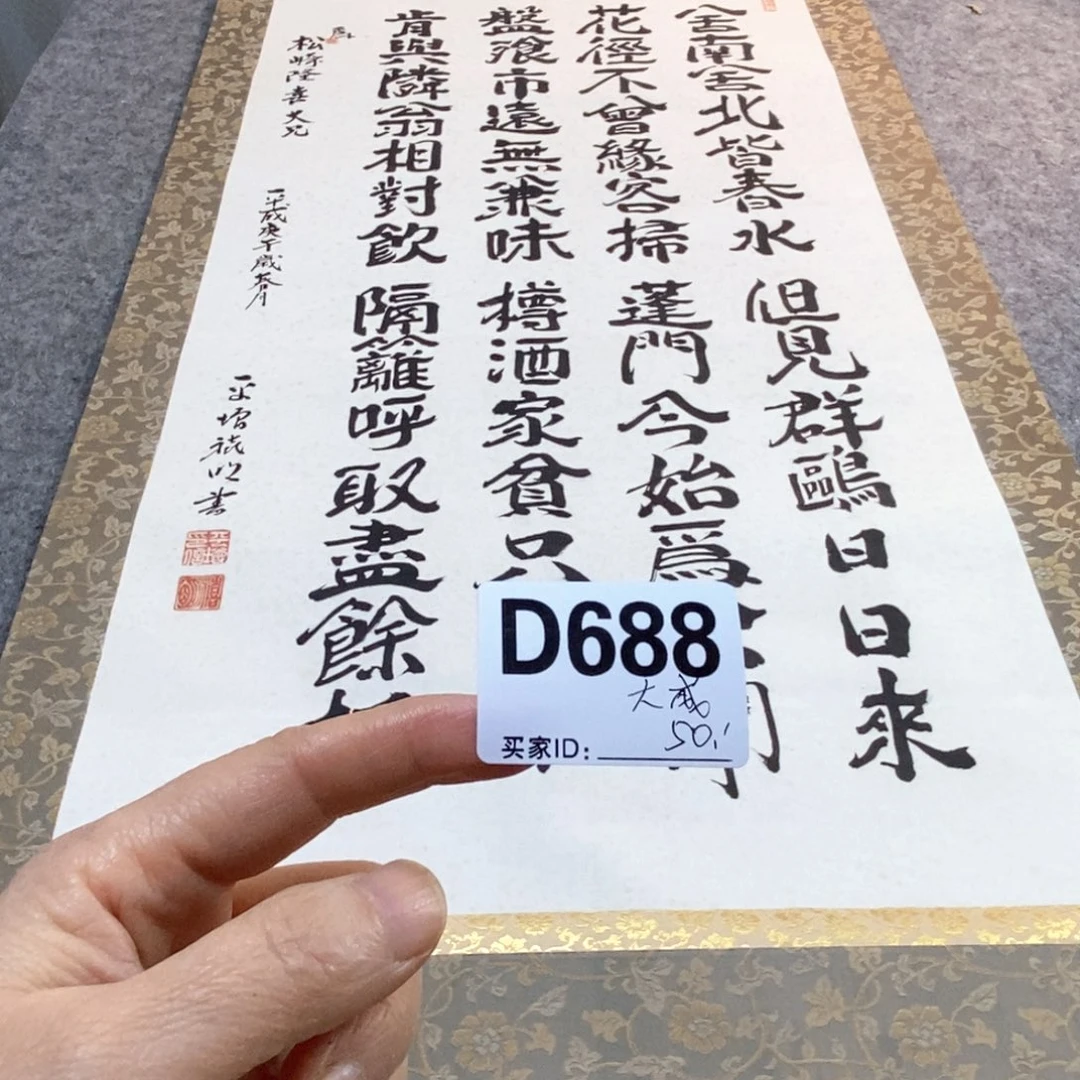 舍南舍北皆春水 但見群鷗日日來
花徑不曾緣客掃 蓬門今始爲
盤飧市遠無兼味 樽酒家貧只
肯與隣翁相對飲 隔籬呼取盡餘
松崎隆喜大兄
平成庚午歲春月
平增
書
D688
大威
50
买家ID: